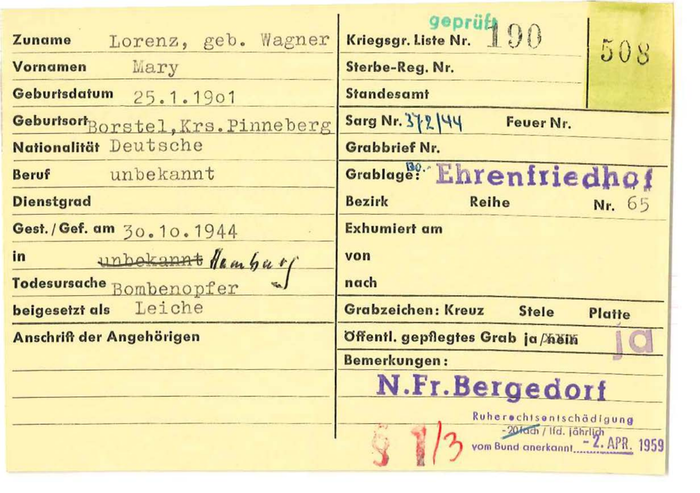 geprüft
Zuname Lorenz, geb. Wagner
Vornamen Mary
Geburtsdatum 25.1.1901
Geburtsort Borstel,Krs.Pinneberg
Nationalität Deutsche
Beruf unbekannt
Dienstgrad
Gest./Gef. am 30.10.1944
in unbekannt Hamburg
Todesursache Bombenopfer
beigesetzt als Leiche
Anschrift der Angehörigen
Kriegsgr. Liste Nr. 190
508
Sterbe-Reg. Nr.
Standesamt
Sarg Nr. 372/44 Feuer Nr.
Grabbrief Nr.
Grablage: Bo.- Ehrenfriedhof
Bezirk Reihe Nr. 65
Exhumiert am
von
nach
Grabzeichen: Kreuz Stele Platte
Öffentl. gepflegtes Grab ja nein ja
Bemerkungen:
N.Fr.Bergedorf
Ruherechtsentschädigung
-20fach / lfd. jährlich
vom Bund anerkannt -2. APR. 1959
§ 1/3